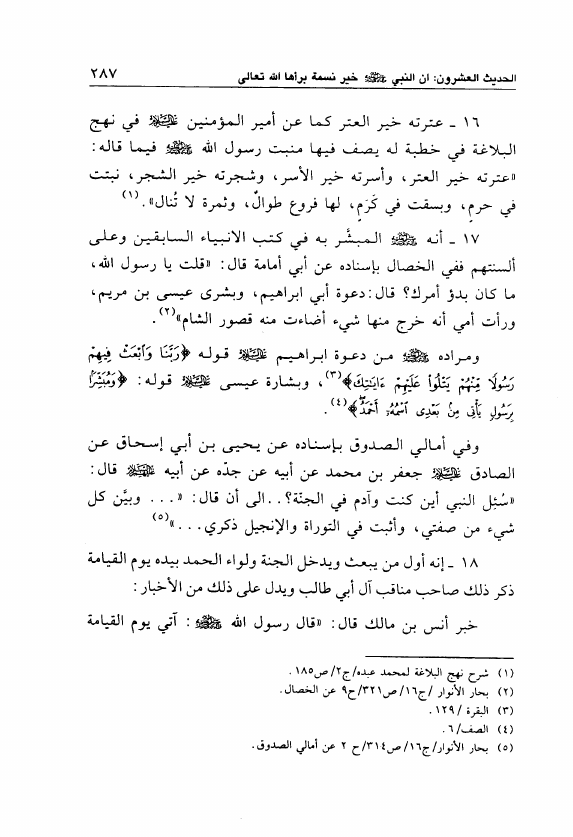 الحديث العشرون: ان النبي ﷺ خير نسمة برأها الله تعالى ٢٨٧
١٦ ـ عترته خير العتر كما عن أمير المؤمنين عليه السلام في نهج
البلاغة في خطبة له يصف فيها منبت رسول الله ﷺ فيما قاله:
«عترته خير العتر، وأسرته خير الأسر، وشجرته خير الشجر، نبتت
في حرمٍ، وبسقت في كَرَمٍ، لها فروع طوالٌ، وثمرة لا تُنال».(١)
١٧ ـ أنه ﷺ المبشَّر به في كتب الانبياء السابقين وعلى
ألسنتهم ففي الخصال بإسناده عن أبي أمامة قال: «قلت يا رسول الله،
ما كان بدؤ أمرك؟ قال: دعوة أبي ابراهيم، وبشرى عيسى بن مريم،
ورأت أمي أنه خرج منها شيء أضاءت منه قصور الشام»(٢).
ومراده ﷺ من دعوة ابراهيم عليه السلام قوله ﴿رَبَّنَا وَٱبْعَثْ فِيهِمْ
رَسُولًا مِّنْهُمْ يَتْلُوا۟ عَلَيْهِمْ ءَايَٰتِكَ﴾(٣)، وبشارة عيسى عليه السلام قوله: ﴿وَمُبَشِّرًۢا
بِرَسُولٍ يَأْتِى مِنۢ بَعْدِى ٱسْمُهُۥٓ أَحْمَدُ﴾(٤).
وفي أمالي الصدوق بإسناده عن يحيى بن أبي إسحاق عن
الصادق عليه السلام جعفر بن محمد عن أبيه عن جدّه عن أبيه عليهم السلام قال:
«سُئِل النبي أين كنت وآدم في الجنّة؟..الى أن قال: «... وبيَّن كل
شيء من صفتي، وأثبت في التوراة والإنجيل ذكري...»(٥)
١٨ ـ إنه أول من يبعث ويدخل الجنة ولواء الحمد بيده يوم القيامة
ذكر ذلك صاحب مناقب آل أبي طالب ويدل على ذلك من الأخبار:
خبر أنس بن مالك قال: «قال رسول الله ﷺ: آتي يوم القيامة
(١) شرح نهج البلاغة لمحمد عبده/ج٢/ص١٨٥.
(٢) بحار الأنوار /ج١٦/ص٣٢١/ح٩ عن الخصال.
(٣) البقرة /١٢٩.
(٤) الصف/٦.
(٥) بحار الأنوار/ج١٦/ص٣١٤/ح ٢ عن أمالي الصدوق.